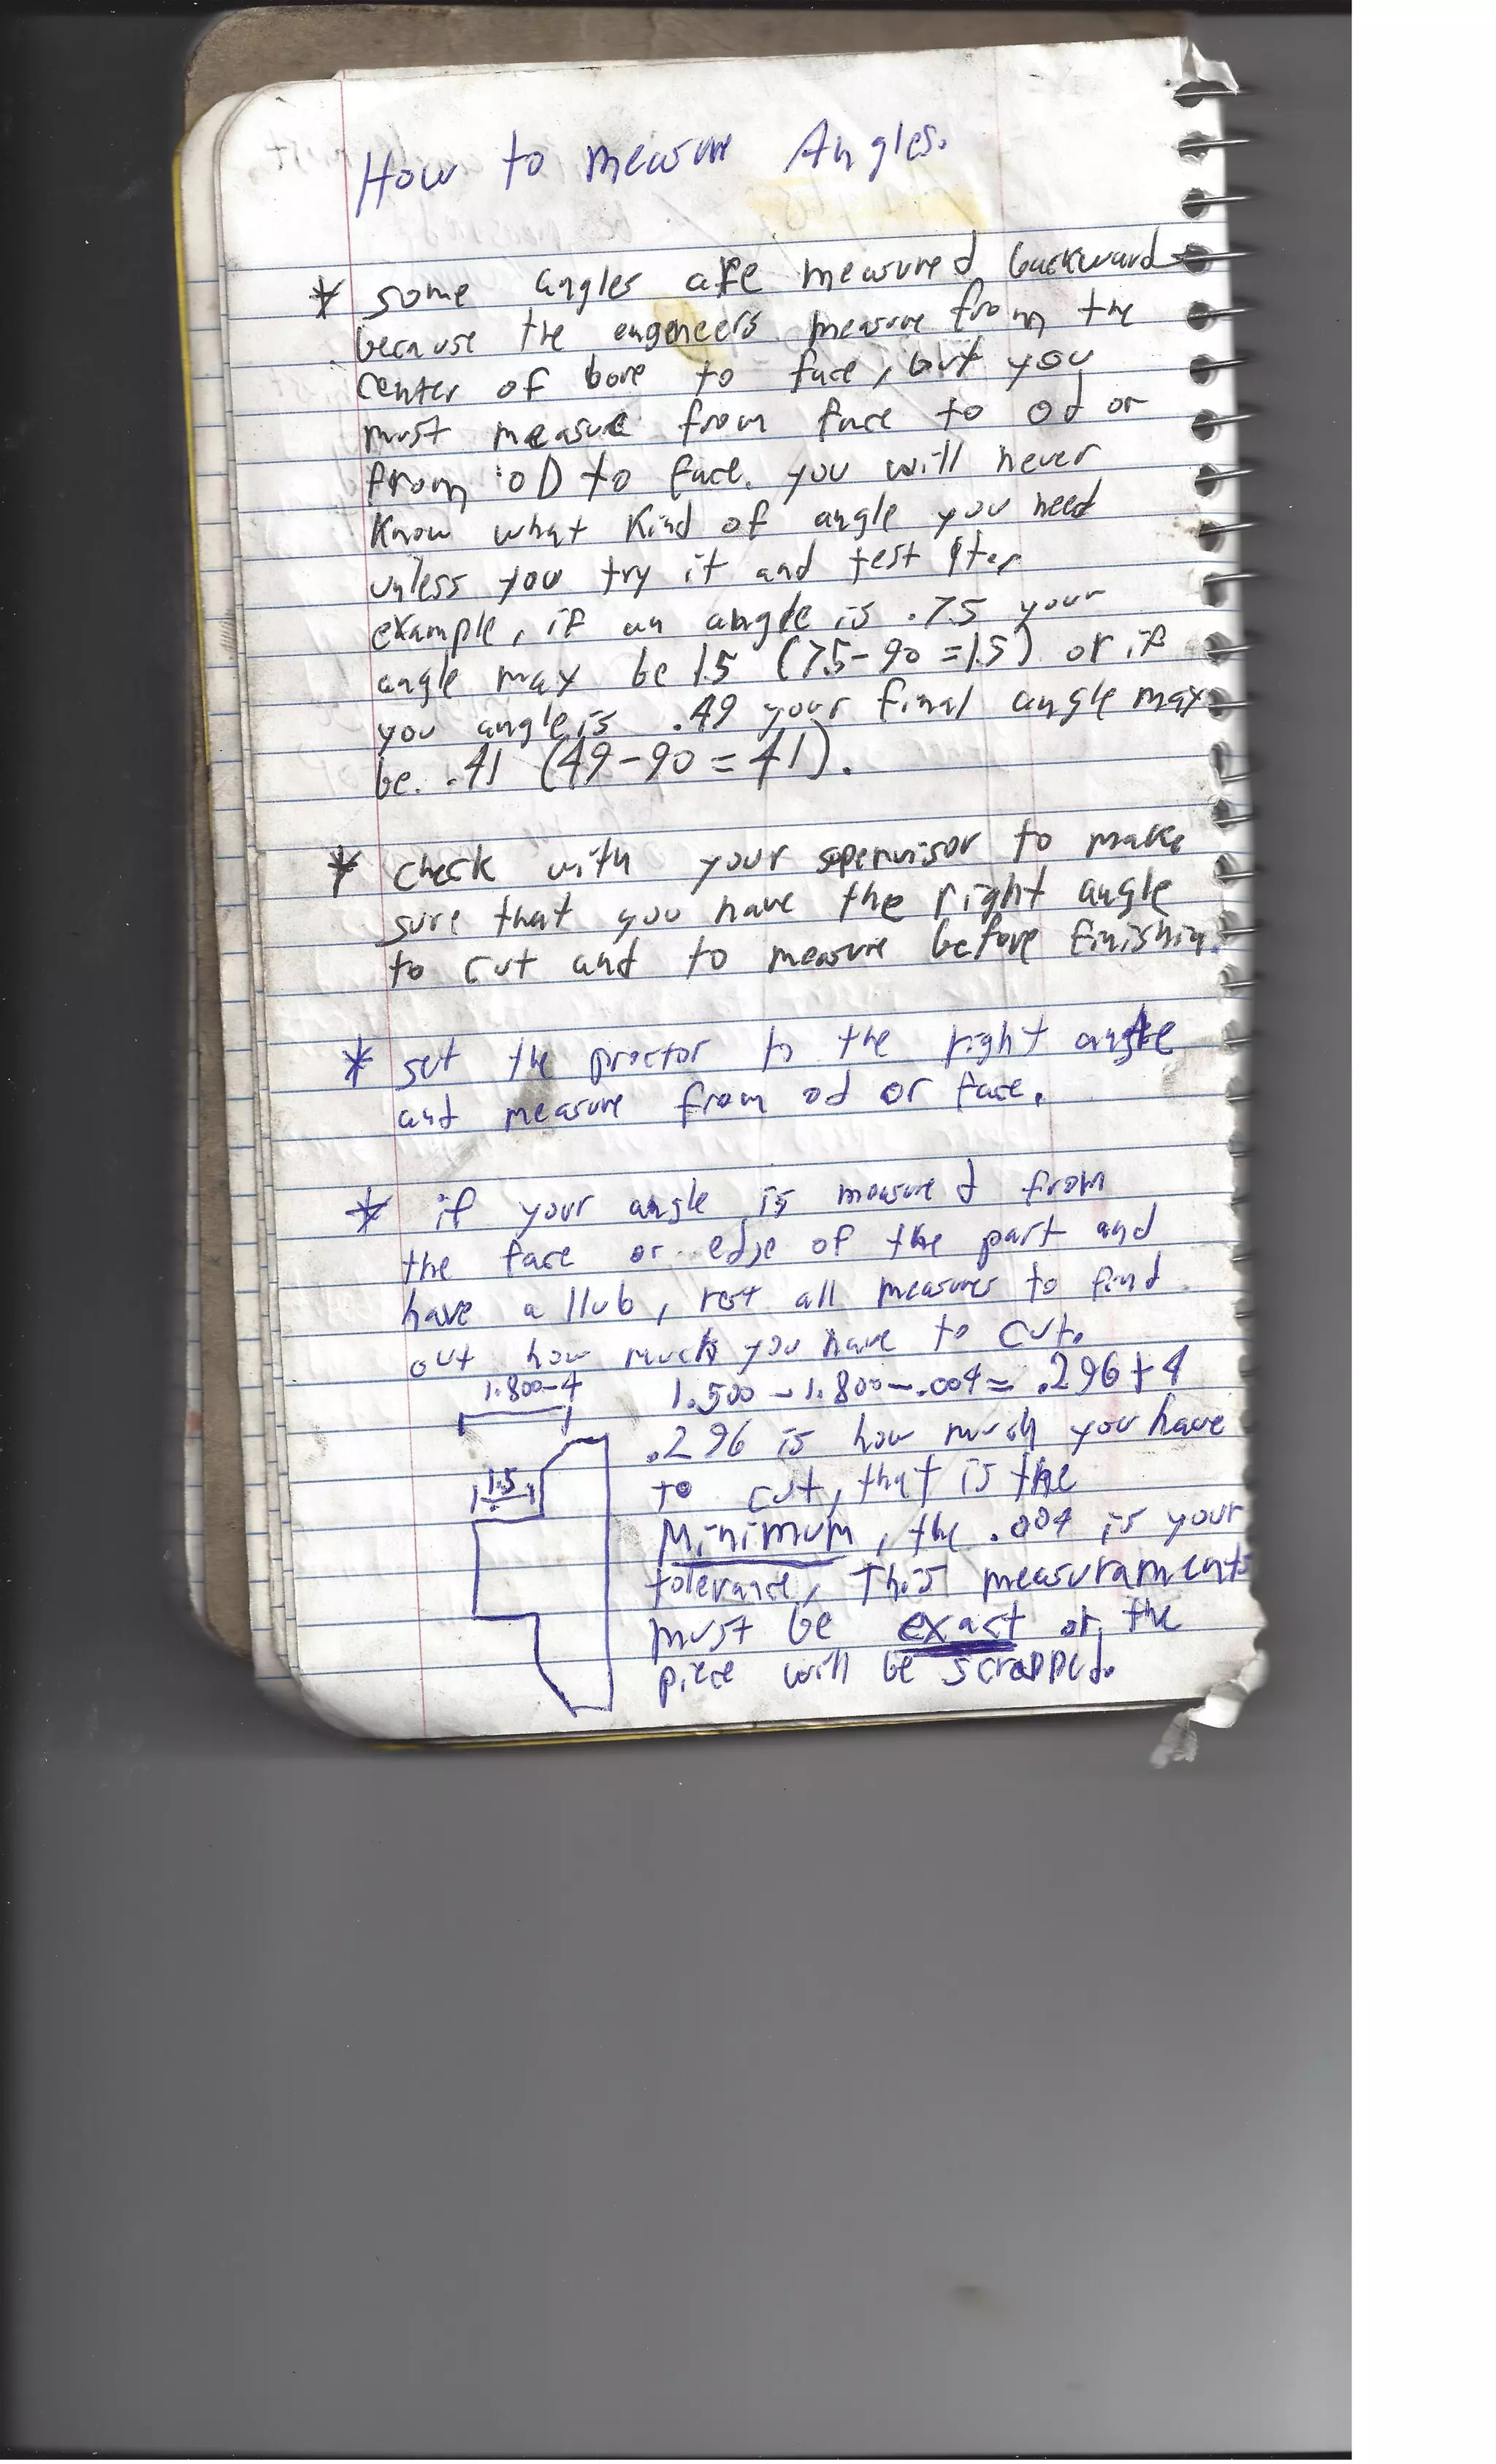 How to measure Angles.
* some angles are measured backward
because the engeneers measure from the
center of bore to face, but you
must measure from face to od or
from OD to face. you will never
know what kind of angle you need
unless you try it and test it.
example, if an angle is .75 your
angle may be 15 (75-90=15) or if
you angle is .49 your final angle may
be. .41 (49-90=41).
* check with your supervisor to make
sure that you have the right angle
to cut and to measure before finishin.
* set the proctor to the right angle
and measure from od or face.
* if your angle is measured from
the face or edje of the part and
have a Hub, rest all measures to find
out how much you have to cut.
1.800-4 1.500-1.800-.004=.296+4
.296 is how much you have
1.5 to cut, that is the
Minimum, the .004 is your
tolerance, This measuraments
must be exact or the
piece will be scrapped.